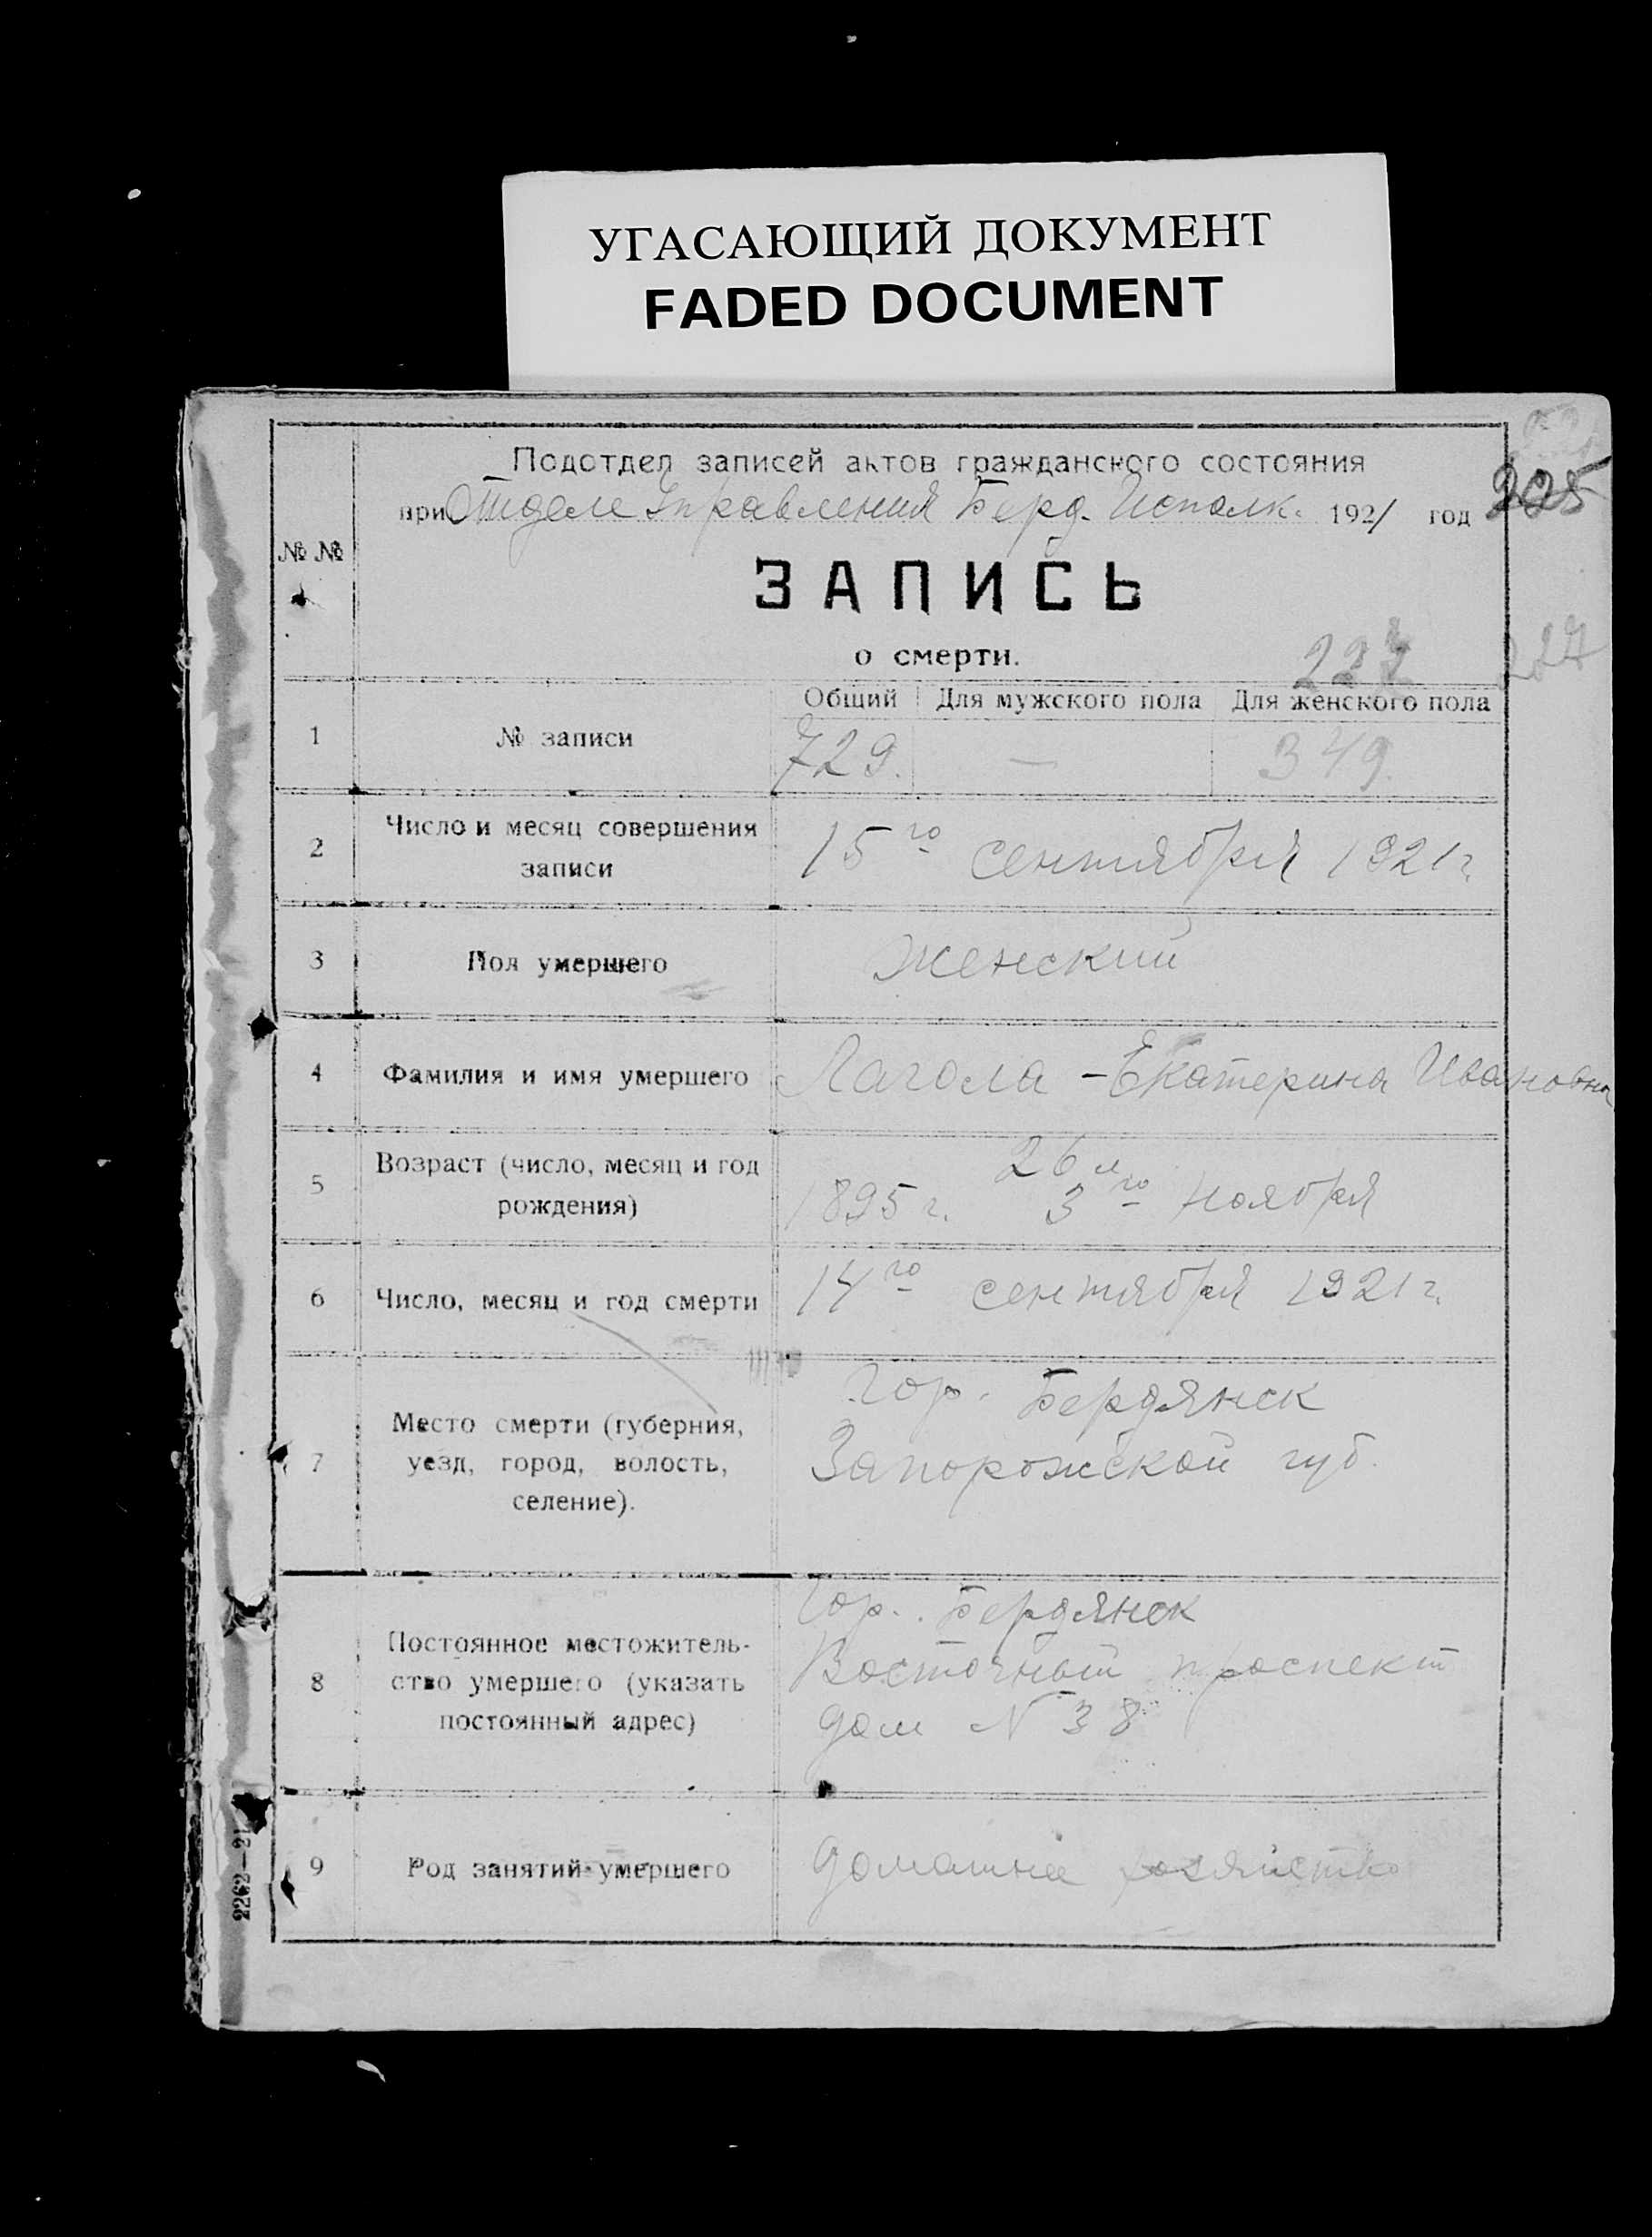 УГАСАЮЩИЙ ДОКУМЕНТ
FADED DOCUMENT
Подотдел записей актов гражданского состояния
при Отделе Управления Берд. Исполк. 1921 год
225
№ №
ЗАПИСЬ
о смерти.
227
Общий Для мужского пола Для женского пола
1 № записи 729. — 349.
2 Число и месяц совершения
записи
15го сентября 1921 г.
3 Пол умершего Женский
4 Фамилия и имя умершего Лагола - Екатерина Ивановна
5 Возраст (число, месяц и год
рождения)
26 л
1895 г. 3го ноября
6 Число, месяц и год смерти 14го сентября 1921 г.
7 Место смерти (губерния,
уезд, город, волость,
селение).
Гор. Бердянск
Запорожской губ.
8 Постоянное местожитель-
ство умершего (указать
постоянный адрес)
Гор. Бердянск
Восточный проспект
дом N 38
9 Род занятий умершего домашнее хозяйство
2262—21